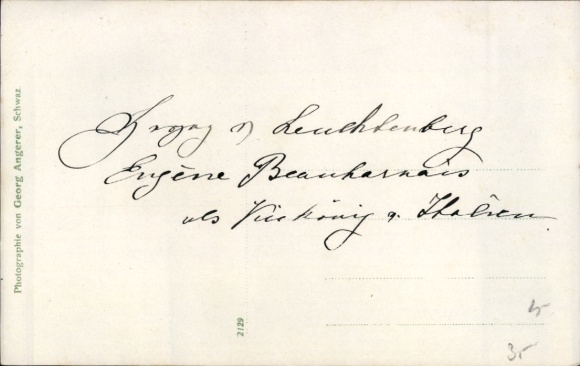 Herzog v Leuchtenberg
Eugène Beauharnais
als Vicekönig v. Italien
Photographie von Georg Angerer, Schwaz
2129
35